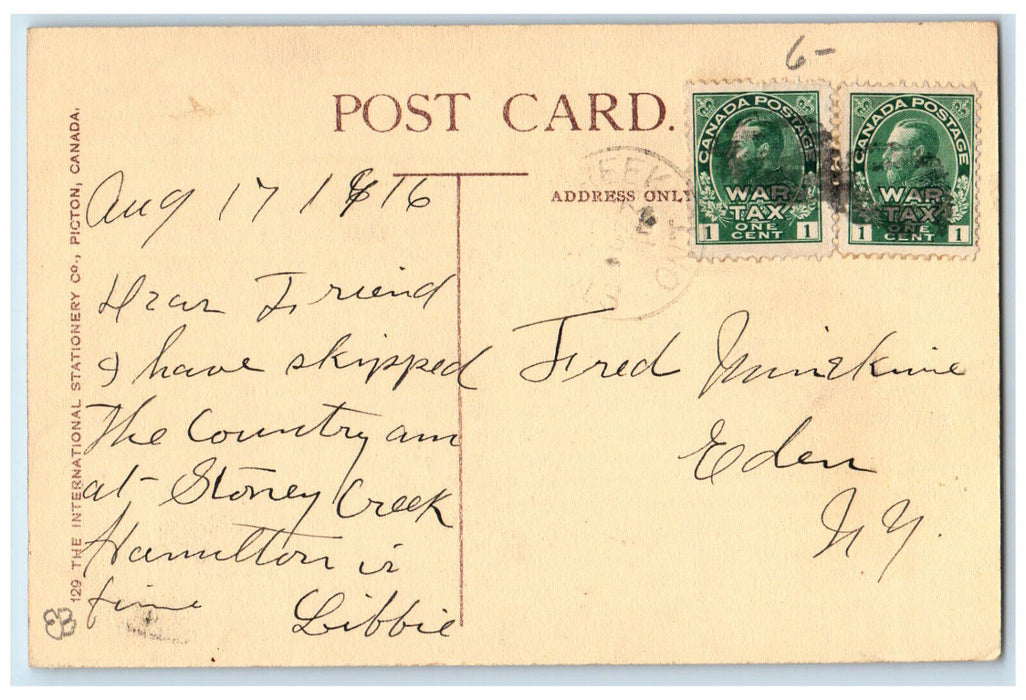 6-
POST CARD.
ADDRESS ONLY
CANADA POSTAGE
WAR
TAX
ONE
CENT
1 1
CANADA POSTAGE
WAR
TAX
ONE
CENT
1 1
129 THE INTERNATIONAL STATIONERY Co., PICTON, CANADA.
Aug 17 1916
Dear Friend
I have skipped
The Country am
at Stoney Creek
Hamilton is
fine
Libbie
Fred
Eden
N Y.